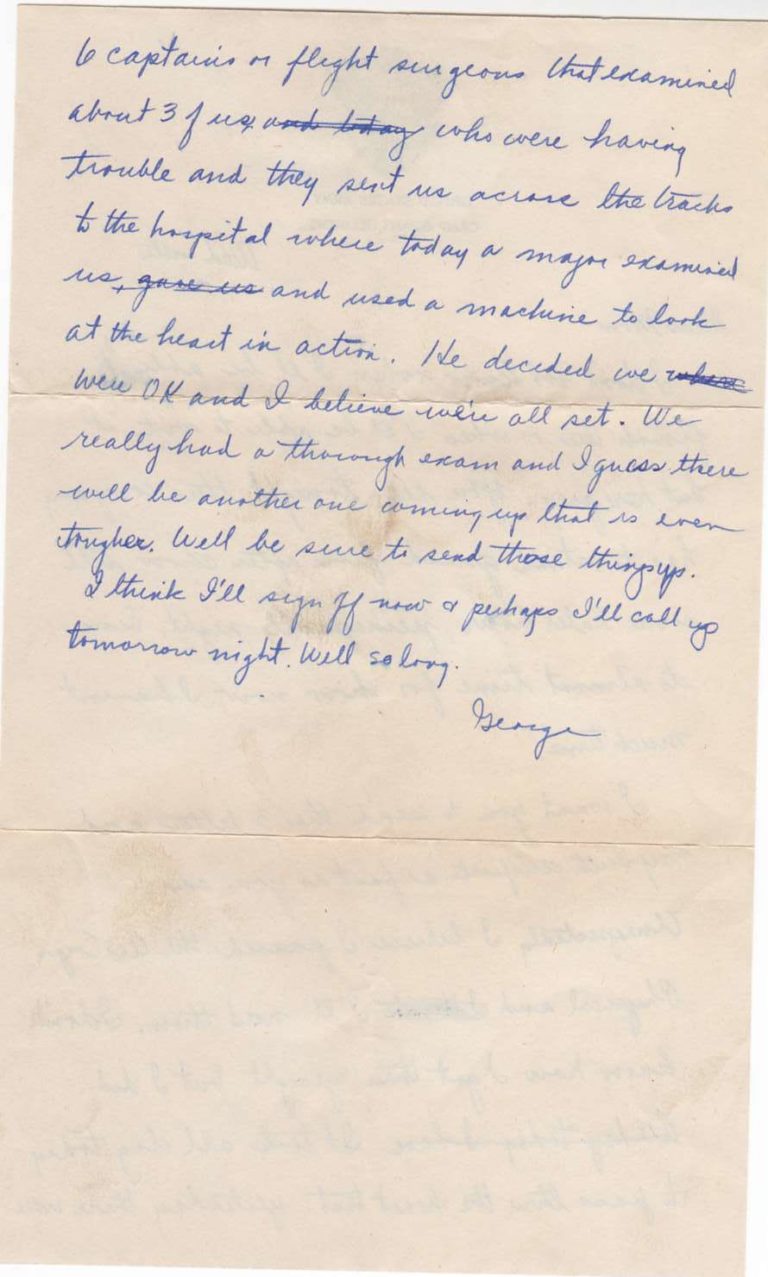 6 captains or flight surgeons that examined
about 3 of us, and today who were having
trouble and they sent us across the tracks
to the hospital where today a major examined
us, gave us and used a machine to look
at the heart in action. He decided we where
were OK and I believe we're all set. We
really had a thorough exam and I guess there
will be another one coming up that is even
tougher. Well be sure to send those things up.
I think I'll sign off now & perhaps I'll call up
tomorrow night. Well so long.
George